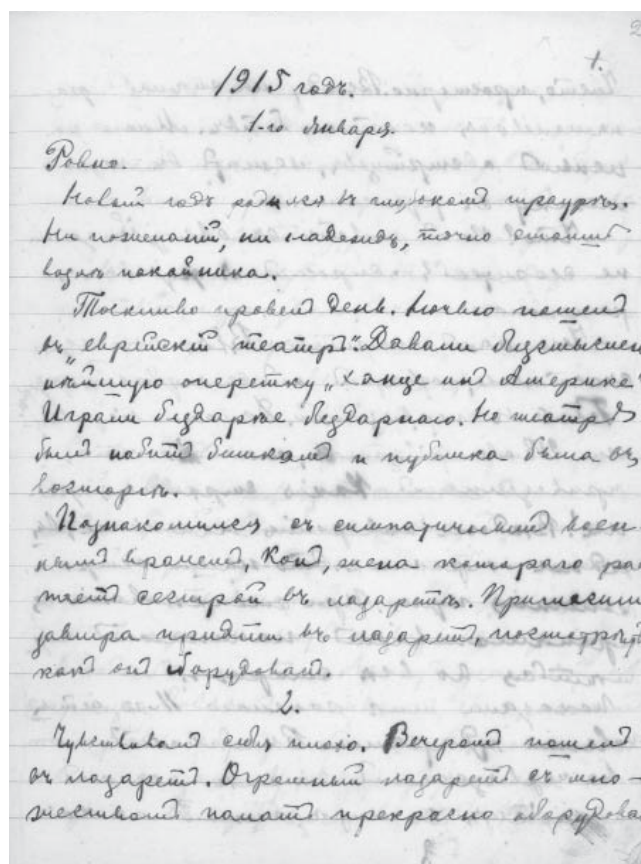 2
1.
1915 годъ.
1-го Января.
Ровно.
Новый годъ родился въ глубокомъ траурѣ.
Ни пожеланій, ни надеждъ, точно стоишь
возлѣ покойника.
Тоскливо провелъ день. Ночью пошелъ
въ „еврейскій театръ". Давали безсмыслен
нѣйшую оперетку „Ханце инъ Америке"
Играли бездарнѣе бездарнаго. Но театръ
былъ набитъ биткомъ и публика была въ
восторгѣ.
Познакомился съ симпатичнымъ воен
нымъ врачемъ, Конъ, жена котораго ра
таетъ сестрой въ лазаретѣ. Пригласили
завтра прийти въ лазаретъ, посмотрѣть
какъ онъ оборудованъ.
2.
Чувствовалъ себя плохо. Вечеромъ пошелъ
въ лазаретъ. Огромный лазаретъ съ мно-
жествомъ палатъ прекрасно оборудова